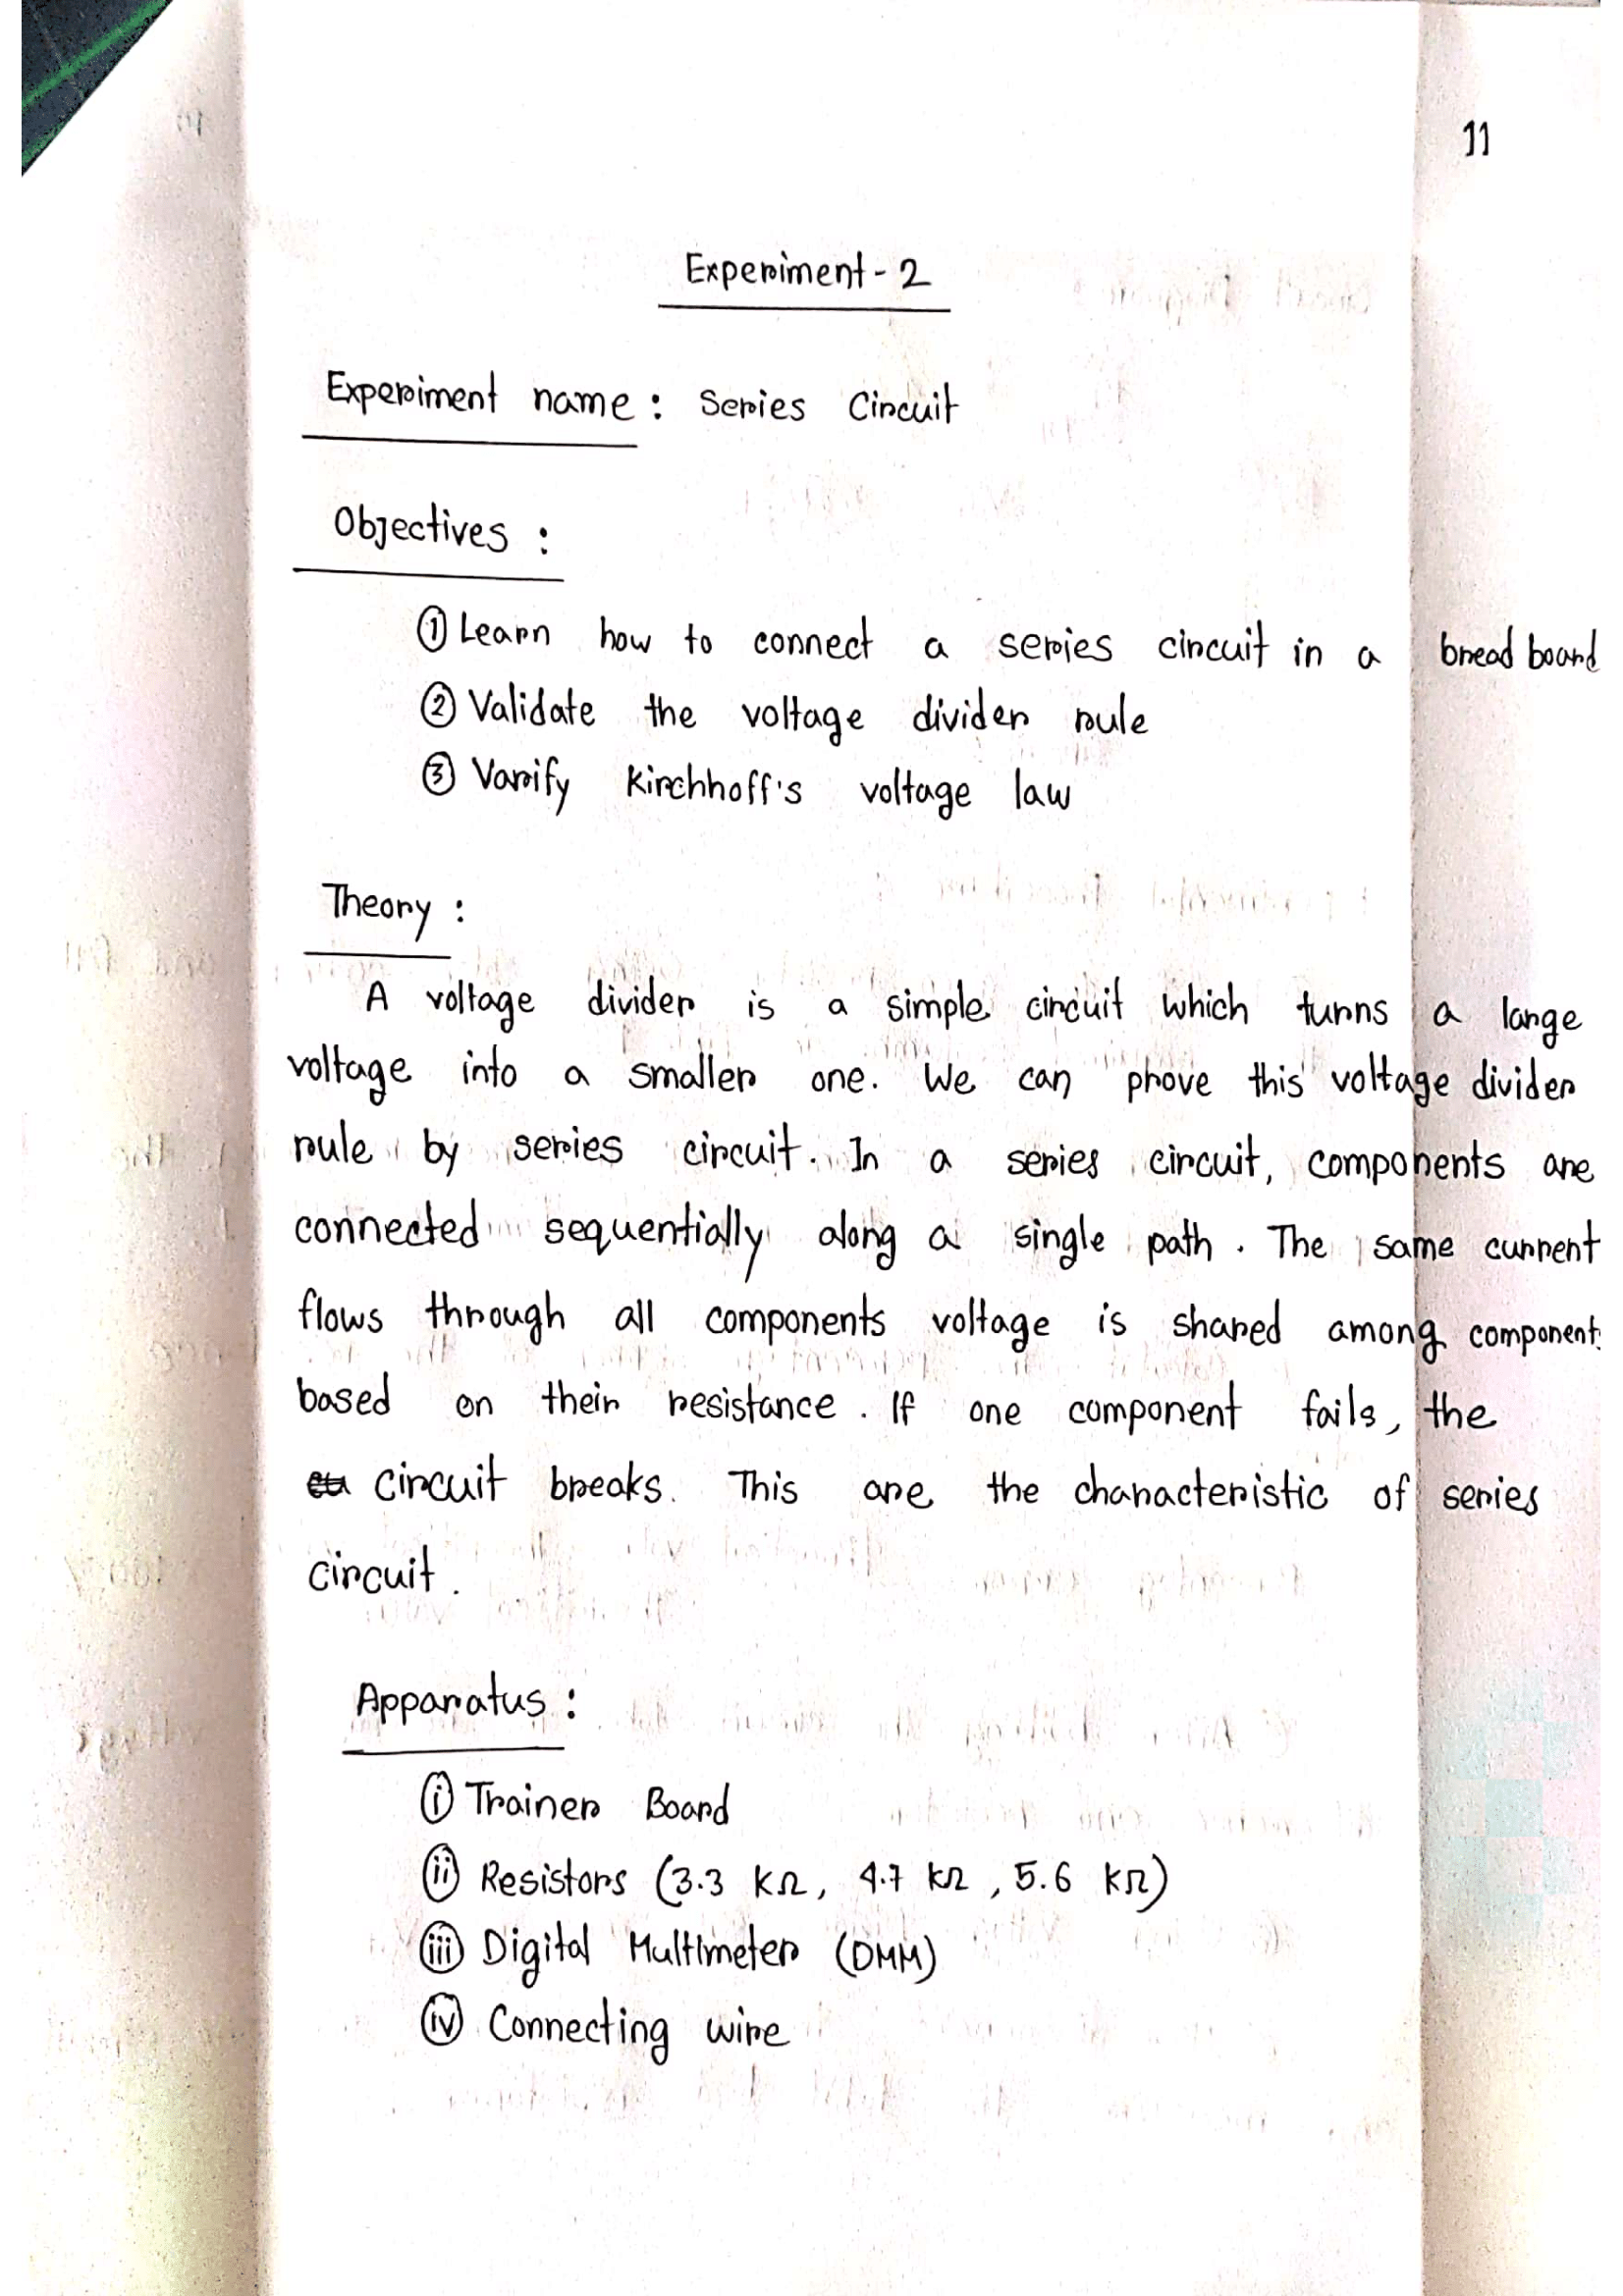 11
Experiment - 2
Experiment name : Series Circuit
Objectives :
① Learn how to connect a series circuit in a bread board
② Validate the voltage divider rule
③ Varify Kirchhoff's voltage law
Theory :
A voltage divider is a simple circuit which turns a large
voltage into a smaller one. We can prove this voltage divider
rule by series circuit. In a series circuit, components are
connected sequentially along a single path. The same current
flows through all components voltage is shared among components
based on their resistance. If one component fails, the
circuit breaks. This are the characteristic of series
circuit.
Apparatus :
ⓘ Trainer Board
ⅱ Resistors (3.3 KΩ, 4.7 KΩ, 5.6 KΩ)
ⅲ Digital Multimeter (DMM)
ⅳ Connecting wire